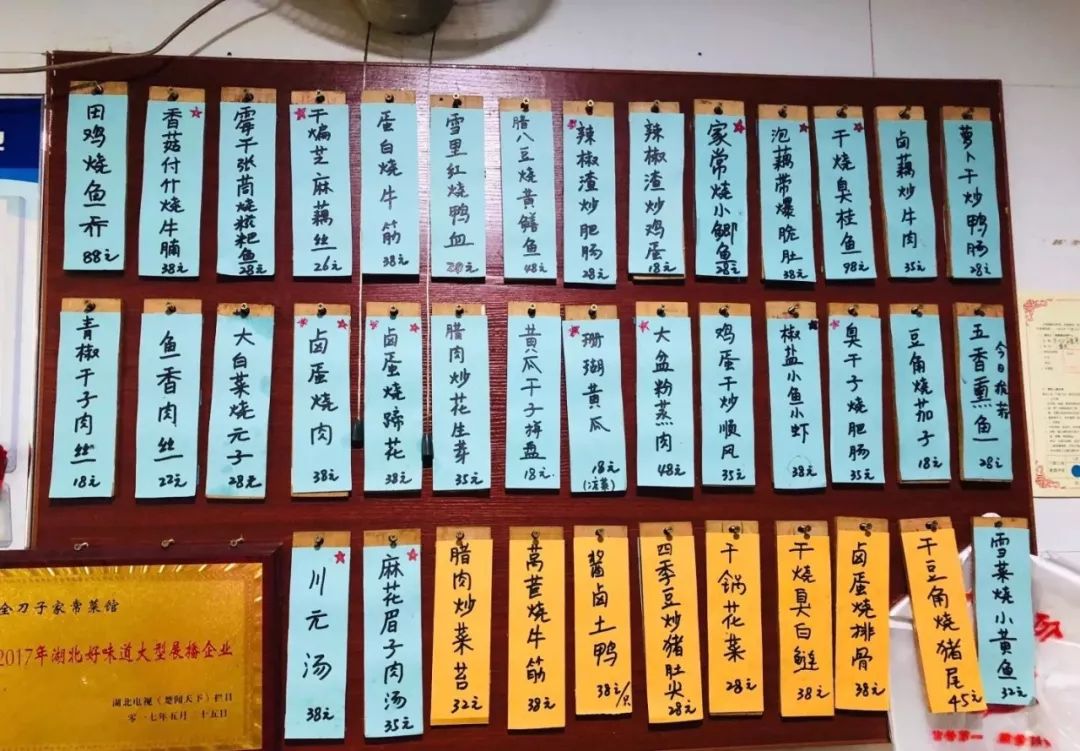 田鸡烧鱼乔
88元
香菇付什烧牛腩
38元
霉千张茼烧糍粑鱼
28元
干煸芝麻藕丝
26元
蛋白烧牛筋
38元
雪里红烧鸭血
20元
腊八豆烧黄鳝鱼
48元
辣椒渣炒肥肠
28元
辣椒渣炒鸡蛋
18元
家常烧小鲫鱼
28元
泡藕带爆脆肚
38元
干烧臭桂鱼
98元
卤藕炒牛肉
35元
萝卜干炒鸭肠
28元
青椒干子肉丝
18元
鱼香肉丝
22元
大白菜烧元子
28元
卤蛋烧肉
38元
卤蛋烧蹄花
38元
腊肉炒花生芽
35元
黄瓜干子拼盘
18元
珊瑚黄瓜
18元
(凉菜)
大盆粉蒸肉
48元
鸡蛋干炒顺风
35元
椒盐小鱼小虾
38元
臭干子烧肥肠
35元
豆角烧茄子
18元
今日推荐
五香熏鱼
28元
川元汤
38元
麻花眉子肉汤
35元
腊肉炒菜苔
32元
莴苣烧牛筋
38元
酱卤土鸭
38元/只
四季豆炒猪肚尖
28元
干锅花菜
28元
干烧臭白鲢
38元
卤蛋烧排骨
38元
干豆角烧猪尾
45元
雪菜烧小黄鱼
32元
金刀子家常菜馆
2017年湖北好味道大型展播企业
湖北电视《楚闻天下》栏目
零一七年五月二十五日